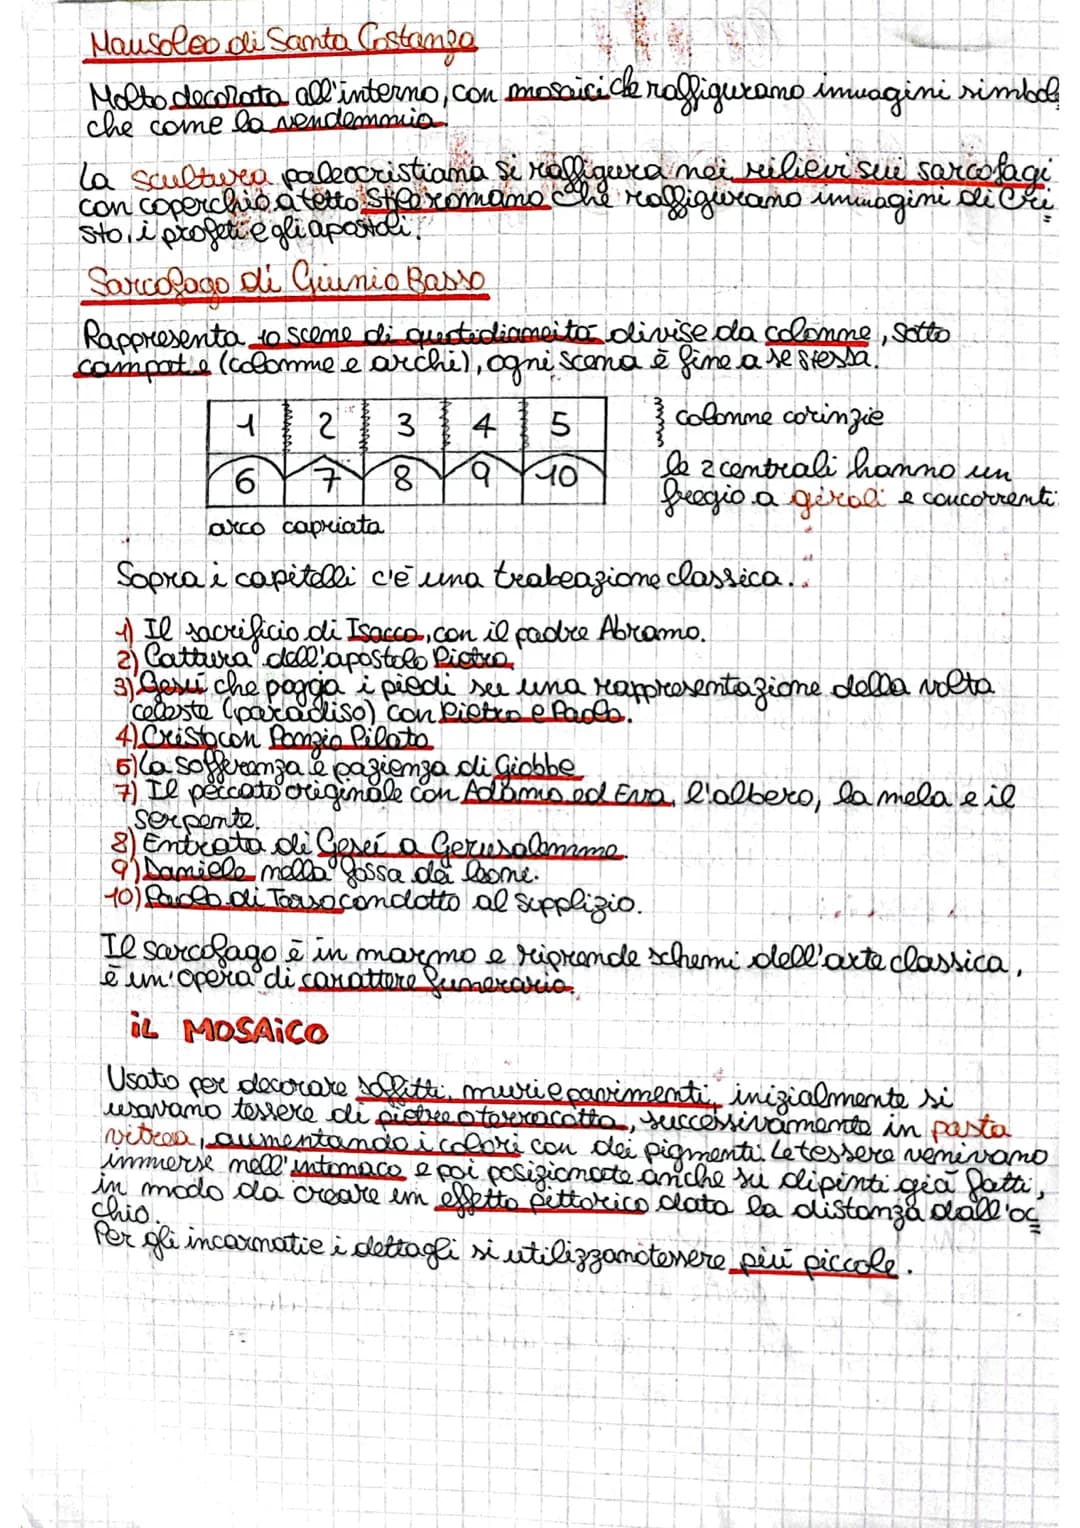 Mausoleo di Santa Costanza
Molto decorata all'interno, con mosaici che raffigurano immagini simboli
che come la vendemmia.
La scultura paleocristiana si raffigura nei rilievi sui sarcofagi
con coperchio a tetto romano che raffigurano immagini di Cri
sto, i profeti e gli apostoli.
Sarcofago di Giunio Basso
Rappresenta 10 scene di quotidianeità divise da colonne, sotto
campate (colonne e archi), ogni scena è fine a se stessa.
1 2 3 4 5
colonne corinzie
6 7 8 9 10
le 2 centrali hanno un
fregio a girali e concorrenti
arco capriata
Sopra i capitelli c'è una trabeazione classica.
1) Il sacrificio di Isacco, con il padre Abramo.
2) Cattura dell'apostolo Pietro
3) Gesù che poggia i piedi su una rappresentazione della volta
celeste (paradiso) con Pietro e Paolo.
4) Cristo con Ponzio Pilato
6) La sofferenza e pazienza di Giobbe
7) Il peccato originale con Adamo ed Eva, l'albero, la mela e il
serpente.
8) Entrata di Gesù a Gerusalemme.
9) Daniele nella fossa dei leoni.
10) Paolo di Tarso condotto al supplizio.
Il sarcofago è in marmo e riprende schemi dell'arte classica,
è un'opera di carattere funerario.
iL MOSAiCO
Usato per decorare soffitti, muri e pavimenti, inizialmente si
usavano tessere di pietre o terracotta, successivamente in pasta
vitrea, aumentando i colori con dei pigmenti. Le tessere venivano
immerse nell'intonaco e poi posizionate anche su dipinti già fatti,
in modo da creare un effetto pittorico data la distanza dall'oc
chio.
Per gli incarnati e i dettagli si utilizzano tessere più piccole.